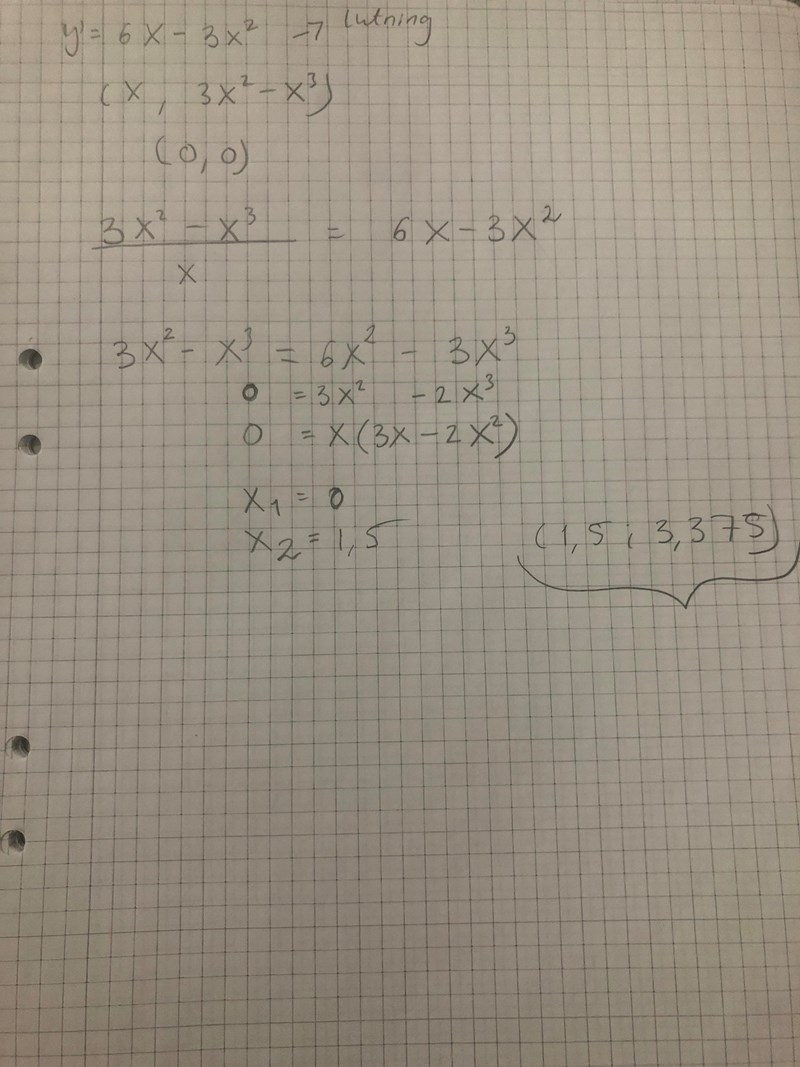 y' = 6x - 3x² -7 lutning
(x, 3x² - x³)
(0,0)
3x² - x³ = 6x - 3x²
x
3x² - x³ = 6x² - 3x³
0 = 3x² - 2x³
0 = x(3x - 2x²)
x₁ = 0
x₂ = 1,5 (1,5 ; 3,375)